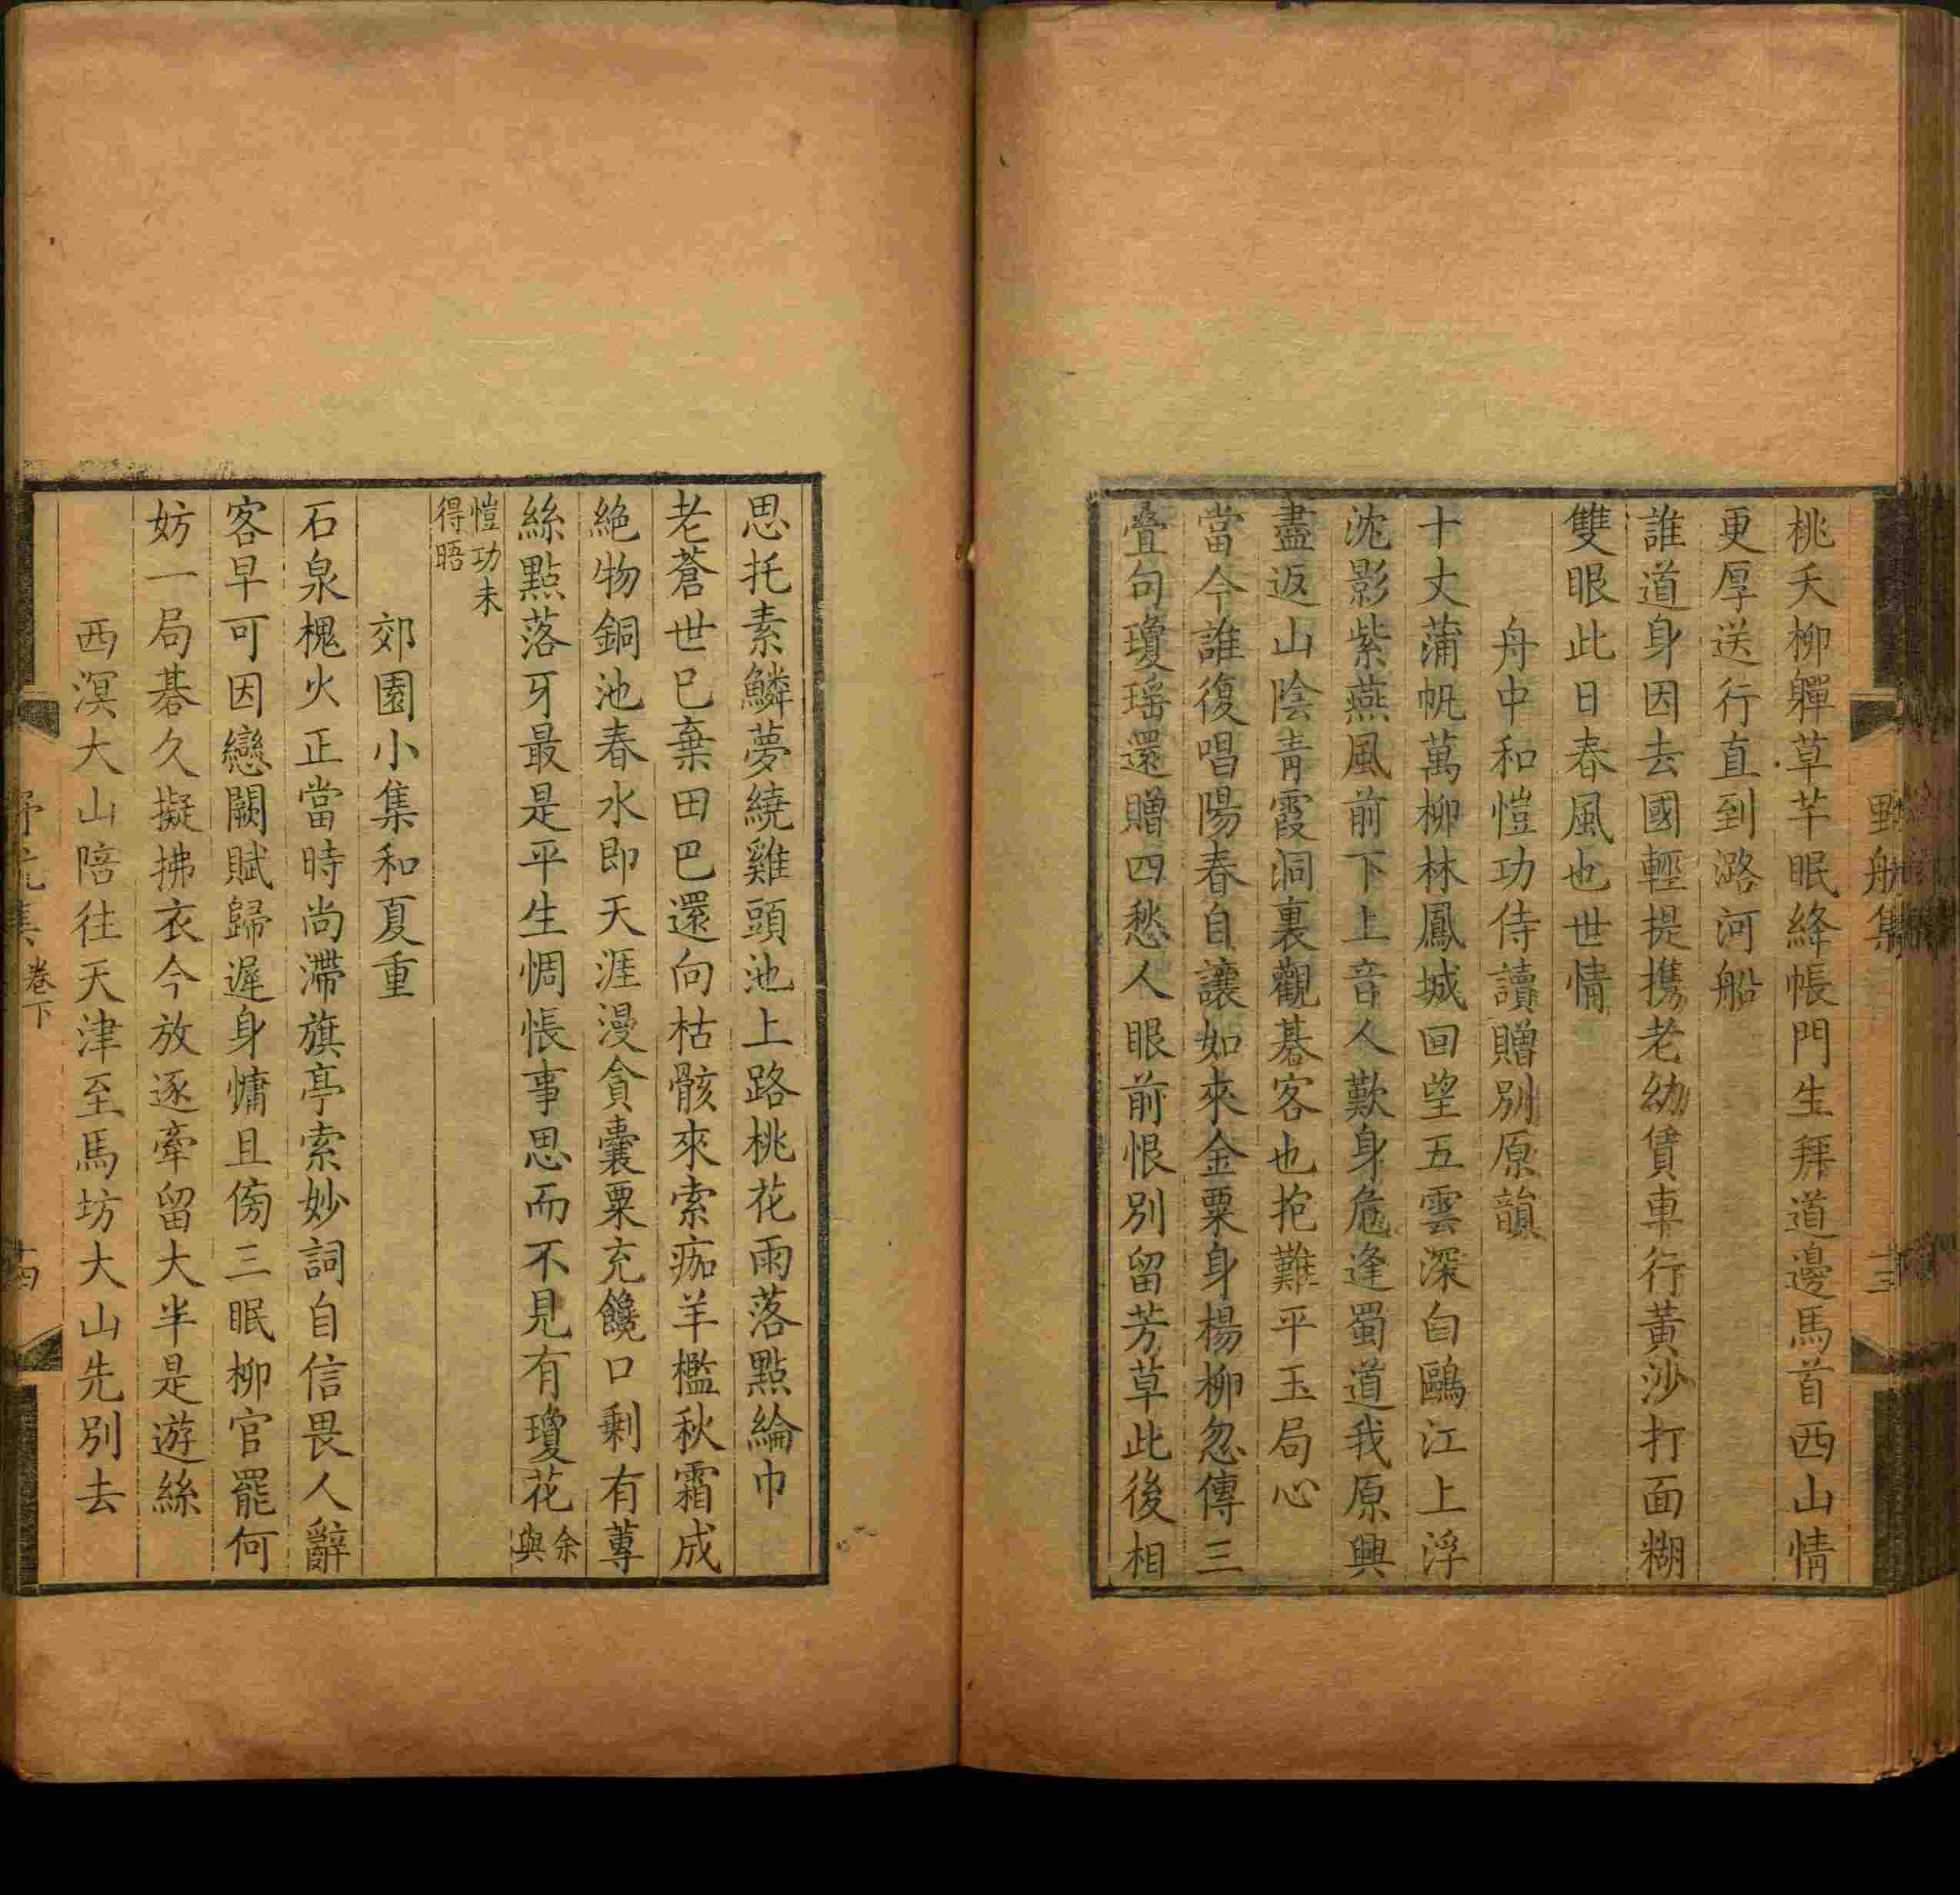 桃夭柳嚲草芊眠絳帳門生拜道邊馬首西山情
更厚送行直到潞河船
誰道身因去國輕提攜老幼賃車行黃沙打面糊
雙眼此日春風也世情
舟中和愷功侍讀贈別原韻
十丈蒲帆萬柳林鳳城回望五雲深白鷗江上浮
沈影紫燕風前下上音人歎身危逢蜀道我原興
盡返山陰青霞洞裏觀碁客也抱難平玉局心
當今誰復唱陽春自讓如來金粟身楊柳忽傳三
疊句瓊瑤還贈四愁人眼前恨別留芳草此後相
思托素鱗夢繞雞頭池上路桃花雨落點綸巾
老蒼世已棄田巴還向枯骸來索痂羊檻秋霜成
絕物銅池春水即天涯漫貪囊粟充饞口剩有蓴
絲點落牙最是平生惆悵事思而不見有瓊花余與
愷功未
得晤
郊園小集和夏重
石泉槐火正當時尚滯旗亭索妙詞自信畏人辭
客早可因戀闕賦歸遲身慵且傍三眠柳官罷何
妨一局碁久擬拂衣今放逐牽留大半是遊絲
西溟大山陪往天津至馬坊大山先別去
卷下